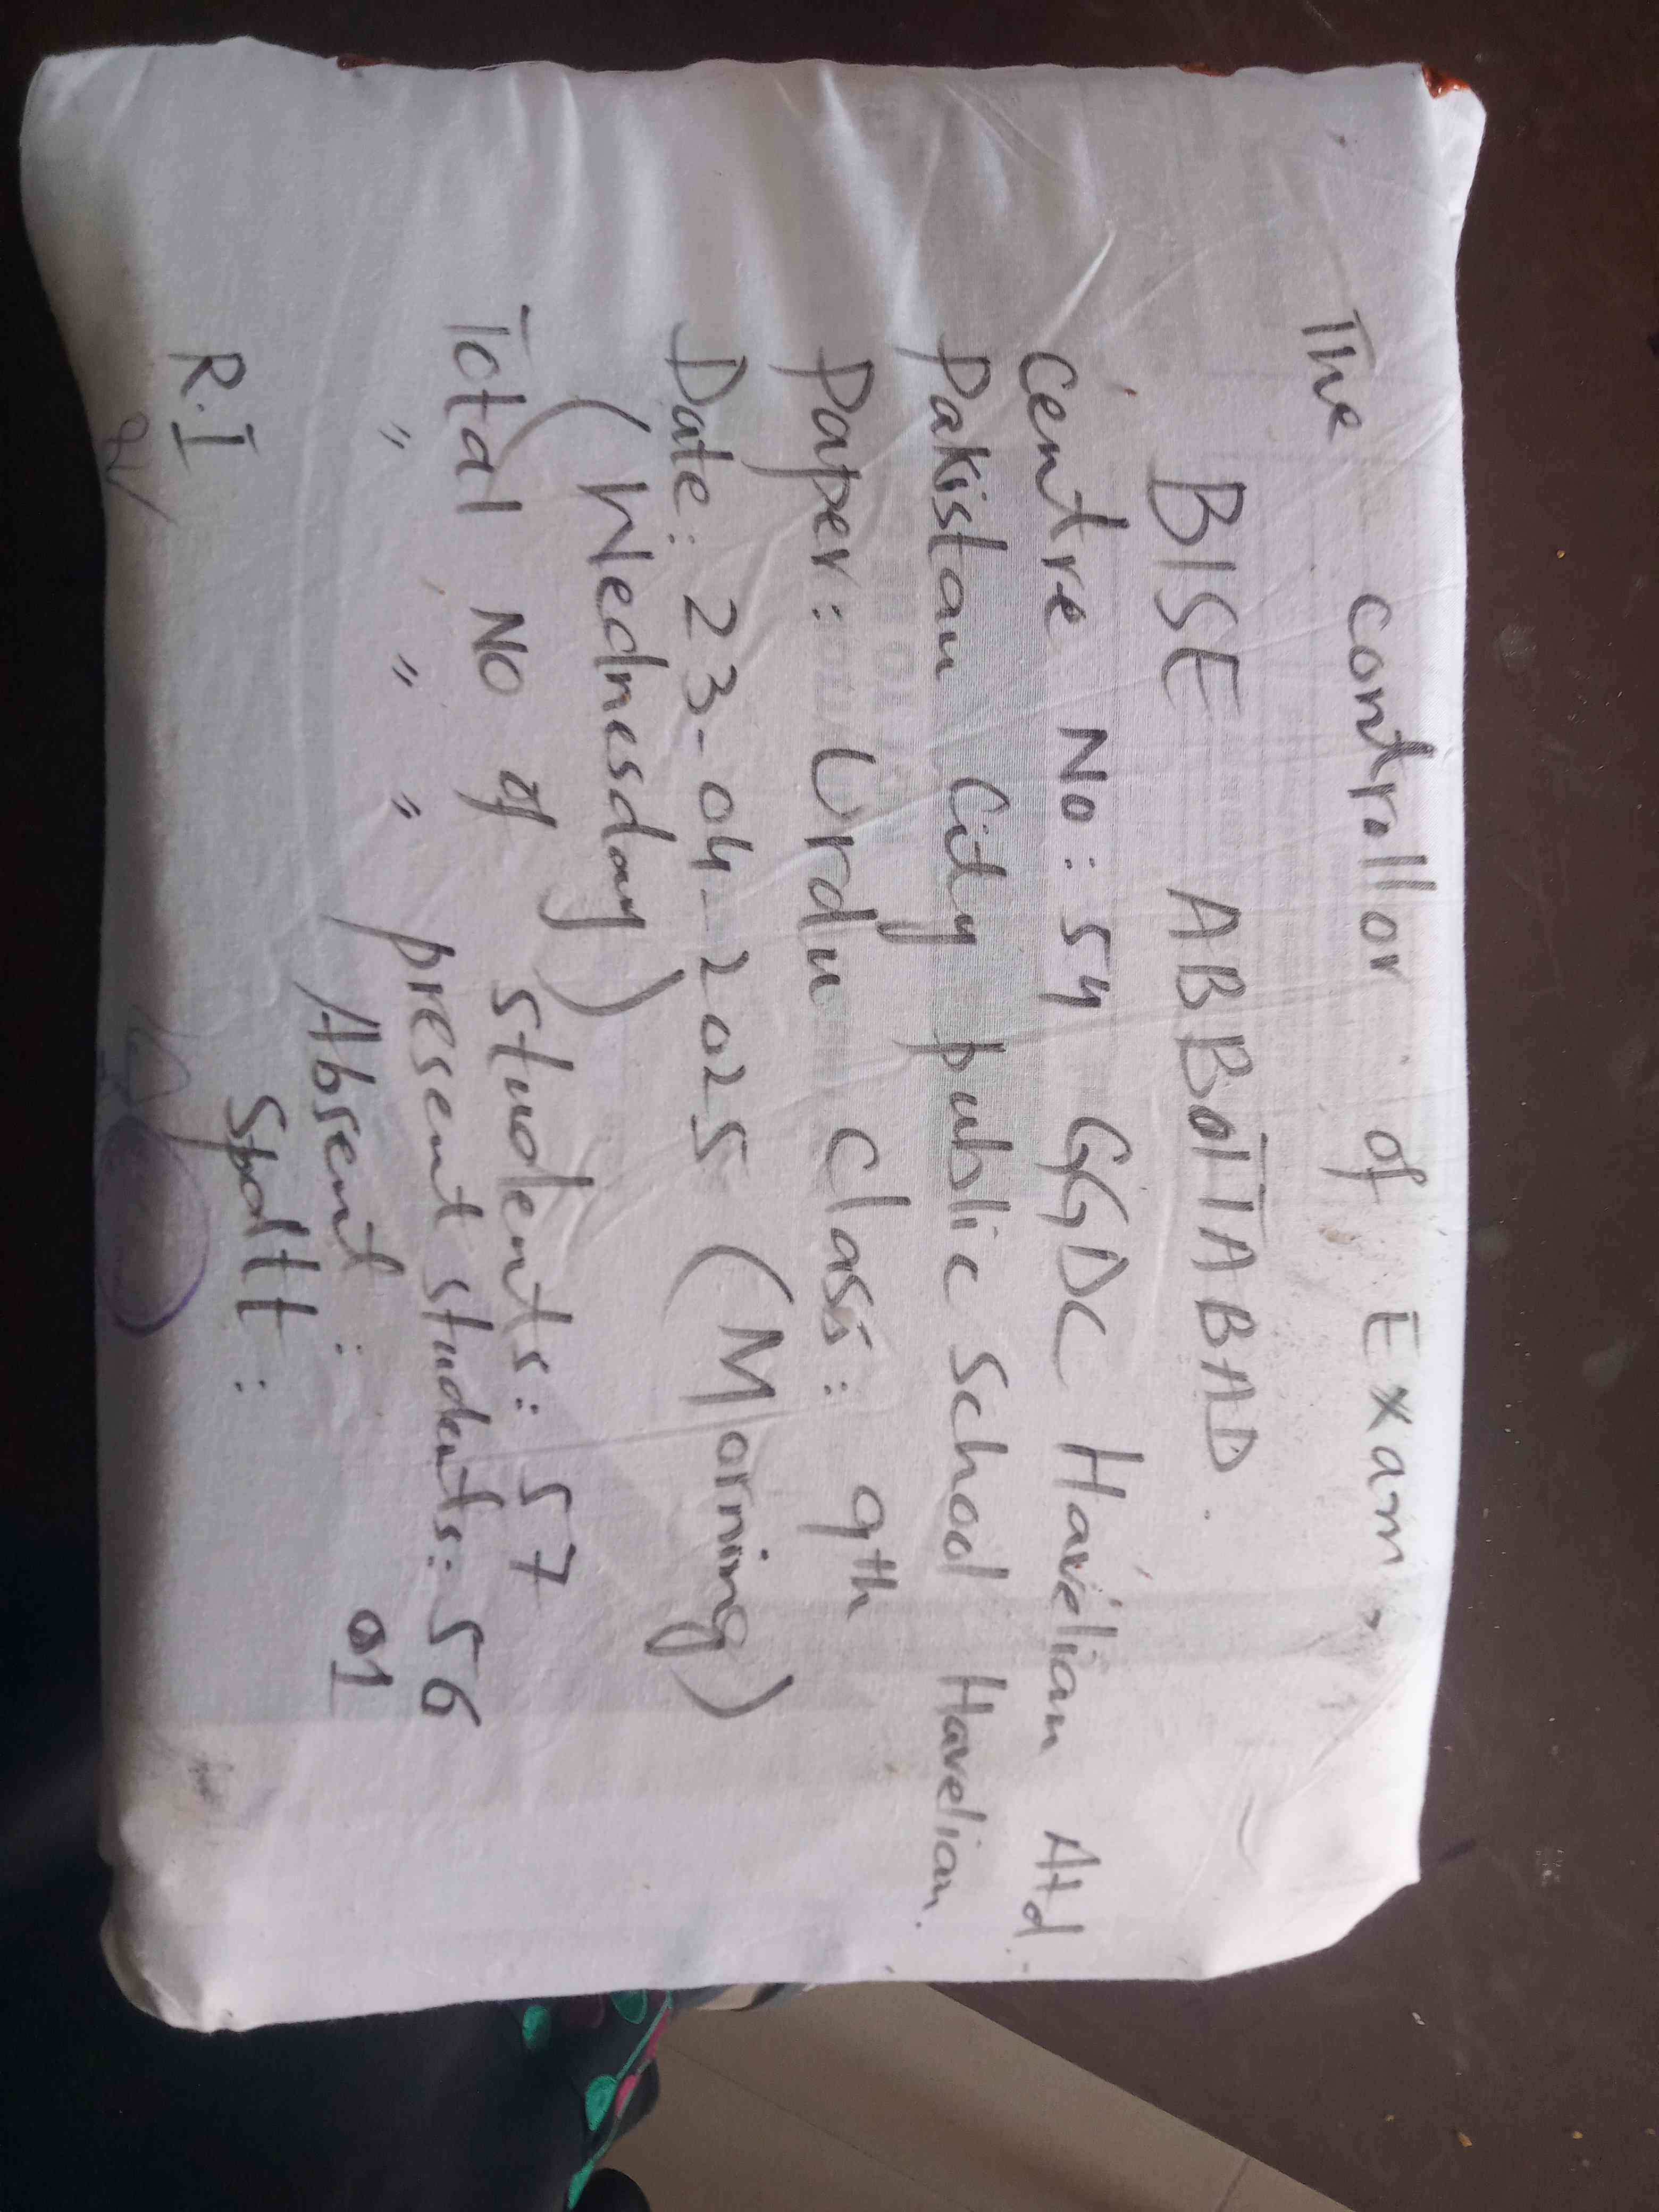 The controllor of Exam,
BISE ABBOTTABAD.
Centre No: 54 GGDC Havelian Atd.
Pakistan City public School Havelian.
Paper: Urdu Class: 9th
Date: 23-04-2025 (Morning)
(Wednesday)
Total No of students: 57
" " " present students: 56
Absent : 01
Spoltt :
R.I